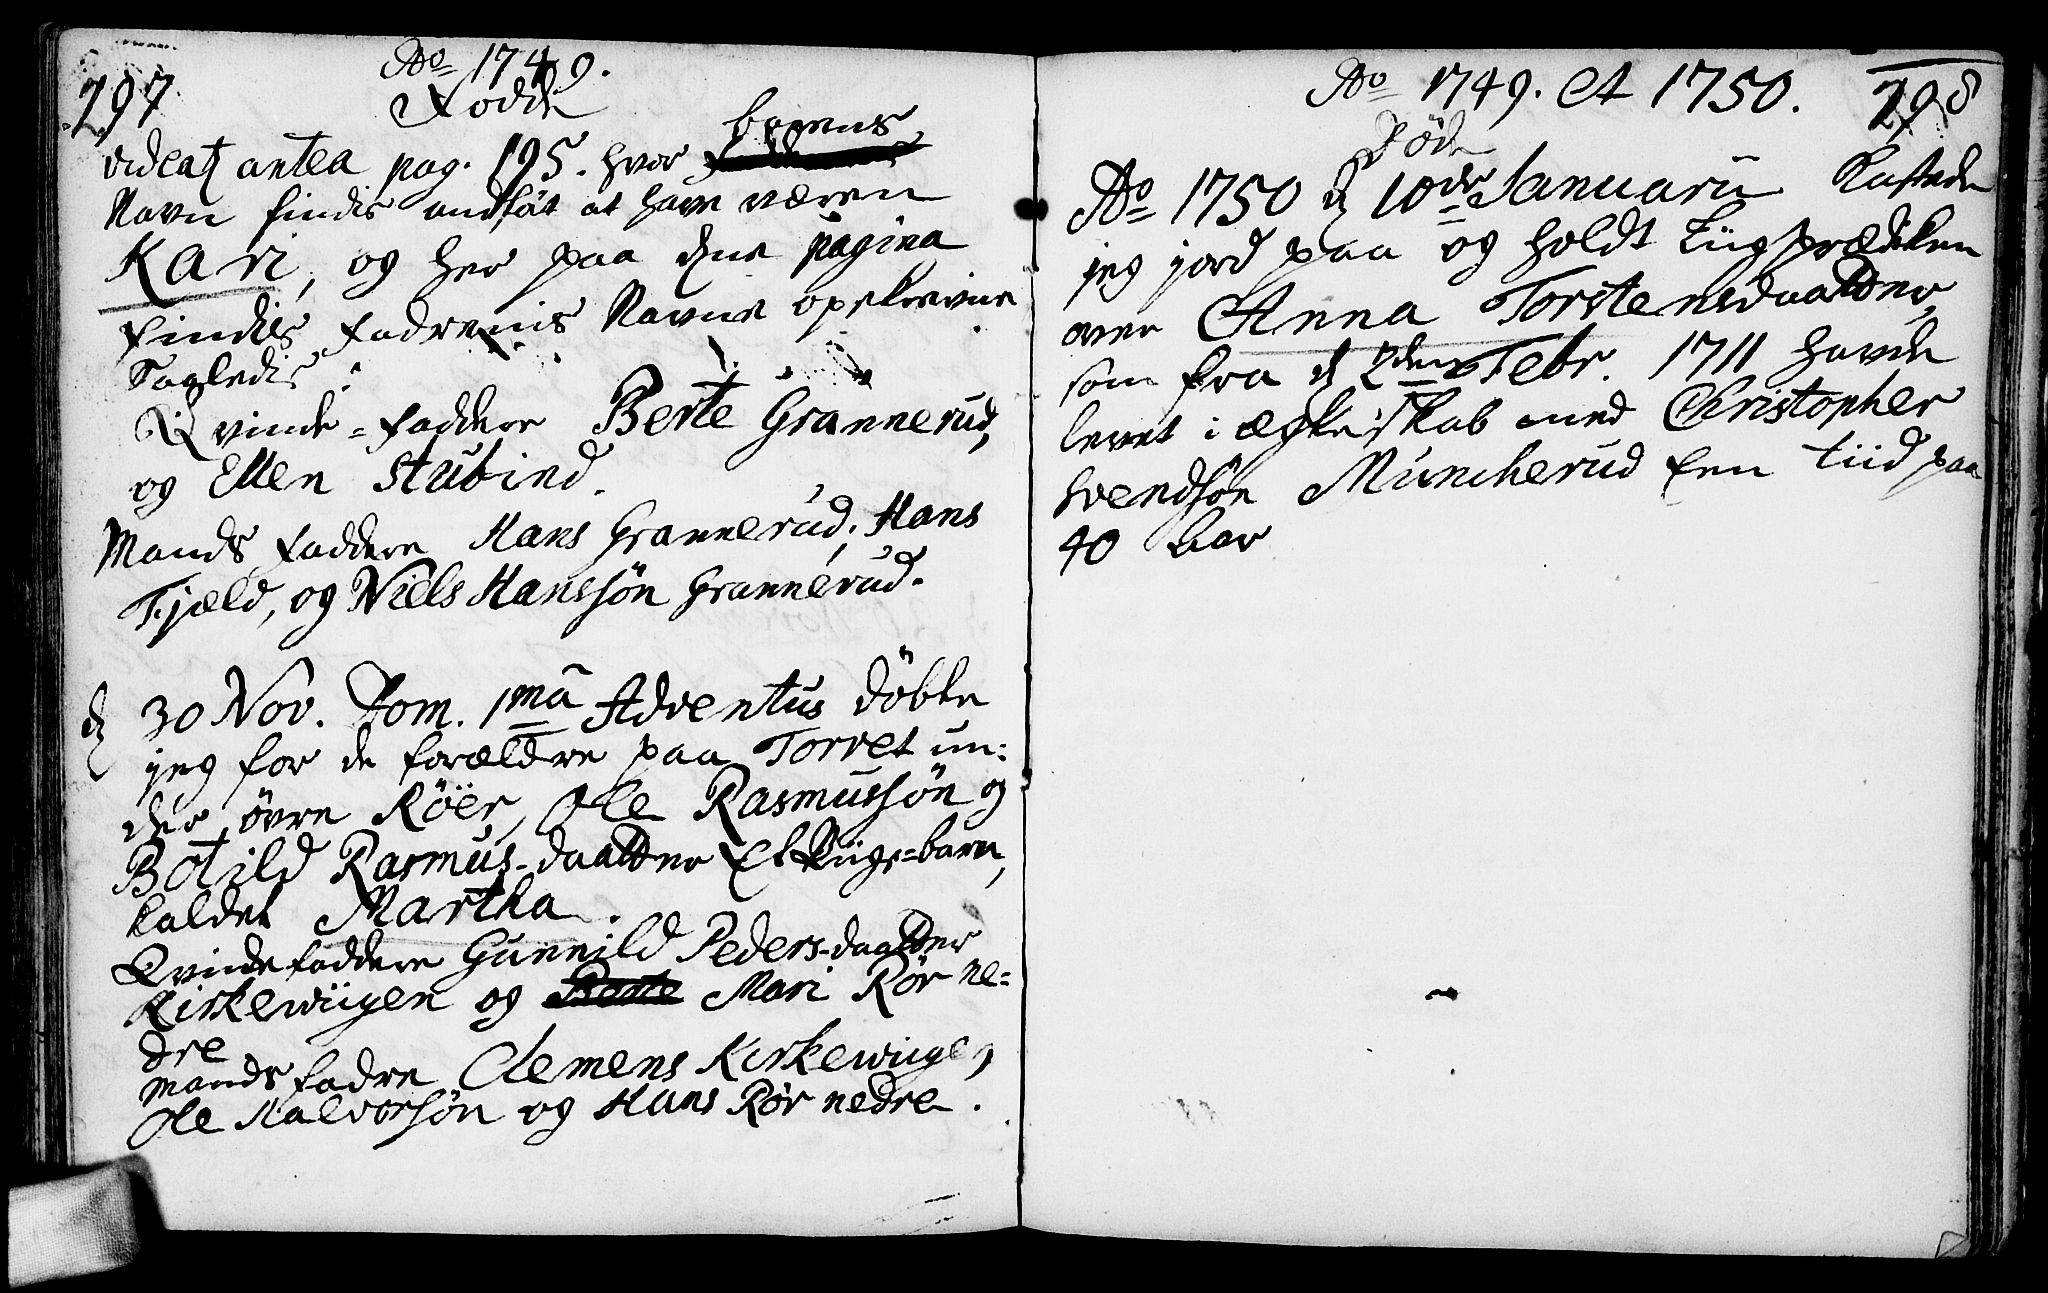 197
Ao 1749.
Fødde
videatr antea pag. 195. hvor barens
Navn findis andført at have væren
Kari, og her paa dene pagina
findes fadrenis Navne opskrevne
Saaledis:
Qvinde=faddere Berte Grannerud,
og Ellen Stubind.
Mands faddere Hans Grannerud, Hans
Fjæld, og Niels Hanssøn Grannerud.
d 30 Nov. Dom. 1mâ Adventus døbte
jeg for de forældre paa Torvet un:
der øvre Röer, Ole Rasmussøn og
Botild Rasmus-daatter Et Piige=barn,
kaldet Martha.
Qvindefaddere Gunnild Peders-daatter
Kirkewiigen og Berte Mari Rør ne=
dre
Mands fadre Clemens Kirkewiigen,
Ole Halvorsøn og Hans Rør nedre.
Ao 1749. Et 1750. 198
Døde
Ao 1750 d 10de Januarii Kastede
jeg jord paa og holdt Liigprædiken
over Anna Torstensdaatter,
som fra d 2den Febr. 1711 havde
levet i ægteskab med Christopher
Svendsøn Muncherud Een tiid paa
40 Aar